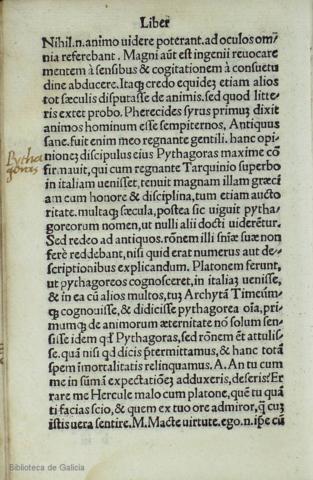 Liber
Nihil.n.animo uidere poterant.ad oculos om/
nia referebant. Magni aūt est ingenii reuocare
mentem à sensibus & cogitationem à consuetu
dine abducere. Itaq; credo equidẽ etiam alios
tot sæculis disputasse de animis. sed quod litte/
ris extet probo. Pherecides syrus primuʒ dixit
animos hominum esse sempiternos, Antiquus
sane. fuit enim meo regnante gentili. hanc opi/
Pytha
goras
nioneʒ discipulus eius Pythagoras maxime cō
fir. mauit, qui cum regnante Tarquinio superbo
in italiam uenisset, tenuit magnam illam græci
am cum honore & disciplina, tum etiam aucto
ritate. multaq; sæcula, postea sic uiguit pytha/
goreorum nomen, ut nulli alii docti uiderētur.
Sed redeo ad antiquos. rōnem illi snīæ suæ non
ferè reddebant, nisi quid erat numerus aut de/
scriptionibus explicandum. Platonem ferunt,
ut pythagoreos cognosceret, in italiaʒ uenisse,
& in ea cū alios multos, tuʒ Archytā Timeūm/
q; cognouisse, & didicisse pythagorea oīa, pri/
mumq; de animorum æternitate nō solum sen/
sisse idem qđ Pythagoras, sed rōnem ēt attulis/
se. quā nisi qđ dicis p̄termittamus, & hanc totā
spem imortalitatis relinquamus. A. An tu cum
me in sūmā expectationeʒ adduxeris, deseris? Er
rare me Hercule malo cum platone, quē tu quā
ti facias scio, & quem ex tuo ore admiror, q̄ cuʒ
istis uera sentire. M. Macte uirtute. ego. n. ipse cū
Biblioteca de Galicia